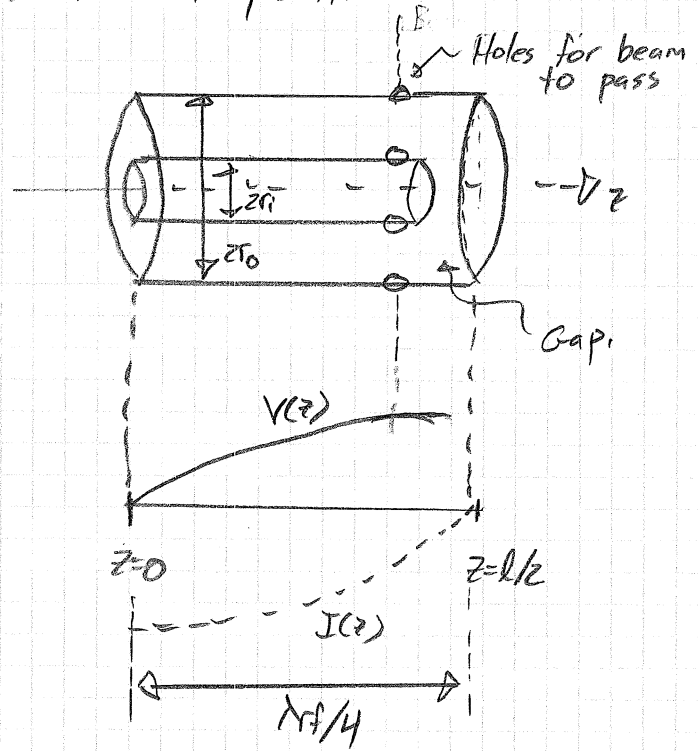 Holes for beam
to pass
2ri
2ro
z
Gap.
V(z)
z=0
z=l/2
I(z)
λrf/4